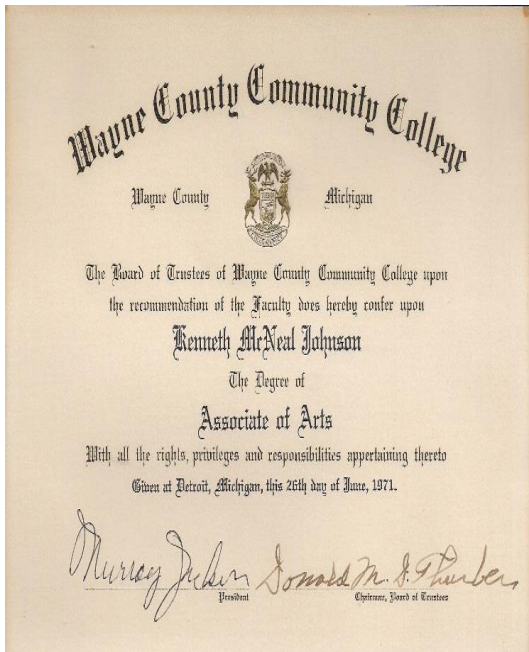 Wayne County Community College
Wayne County Michigan
The Board of Trustees of Wayne County Community College upon
the recommendation of the Faculty does hereby confer upon
Kenneth McNeal Johnson
The Degree of
Associate of Arts
With all the rights, privileges and responsibilities appertaining thereto
Given at Detroit, Michigan, this 26th day of June, 1971.
Murray Jackson Donald M. D. Thurber
President Chairman, Board of Trustees